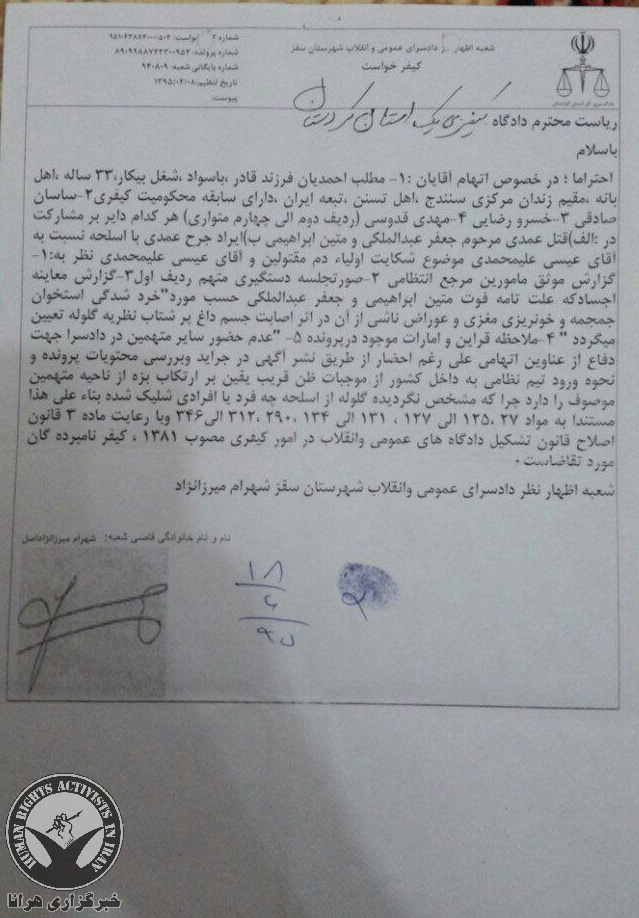 شعبه اظهار نظر دادسرای عمومی و انقلاب شهرستان سقز
کیفر خواست
شماره پرونده: ۸۹۰۹۹۸۸۷۴۲۳۰۰۹۵۲
شماره بایگانی شعبه: ۹۴۰۸۰۹
تاریخ تنظیم: ۱۳۹۵/۰۴/۰۸
پیوست:
ریاست محترم دادگاه کیفری یک استان کردستان
باسلام
احتراما ؛ در خصوص اتهام آقایان :۱- مطلب احمدیان فرزند قادر ،باسواد ،شغل بیکار،۳۳ ساله ،اهل
بانه ،مقیم زندان مرکزی سنندج ،اهل تسنن ،تبعه ایران ،دارای سابقه محکومیت کیفری۲-ساسان
صادقی ۳-خسرو رضایی ۴-مهدی قدوسی (ردیف دوم الی چهارم متواری) هر کدام دایر بر مشارکت
در :الف)قتل عمدی مرحوم جعفر عبدالملکی و متین ابراهیمی ب)ایراد جرح عمدی با اسلحه نسبت به
آقای عیسی علیمحمدی موضوع شکایت اولیاء دم مقتولین و آقای عیسی علیمحمدی نظر به:۱-
گزارش موثق مامورین مرجع انتظامی ۲-صورتجلسه دستگیری متهم ردیف اول۳-گزارش معاینه
اجسادکه علت تامه فوت متین ابراهیمی و جعفر عبدالملکی حسب مورد"خرد شدگی استخوان
جمجمه و خونریزی مغزی و عوراض ناشی از آن در اثر اصابت جسم داغ پر شتاب نظریه گلوله تعیین
میگردد " ۴-ملاحظه قراین و امارات موجود درپرونده ۵- "عدم حضور سایر متهمین در دادسرا جهت
دفاع از عناوین اتهامی علی رغم احضار از طریق نشر آگهی در جراید وبررسی محتویات پرونده و
نحوه ورود تیم نظامی به داخل کشور از موجبات ظن قریب یقین بر ارتکاب بزه از ناحیه متهمین
موصوف را دارد چرا که مشخص نگردیده گلوله از اسلحه چه فرد یا افرادی شلیک شده بناء علی هذا
مستندا به مواد ۲۷ ،۱۲۵ الی ۱۲۷ ، ۱۳۱ الی ۱۳۴ ،۲۹۰ ،۳۱۲ الی۳۴۶ وبا رعایت ماده ۳ قانون
اصلاح قانون تشکیل دادگاه های عمومی وانقلاب در امور کیفری مصوب ۱۳۸۱ ، کیفر نامبرده گان
مورد تقاضاست.
شعبه اظهار نظر دادسرای عمومی وانقلاب شهرستان سقز شهرام میرزانژاد
نام و نام خانوادگی قاضی شعبه: شهرام میرزانژاداصل
۱۸
۶
۹۵
HUMAN RIGHTS ACTIVISTS IN IRAN
خبرگزاری هرانا